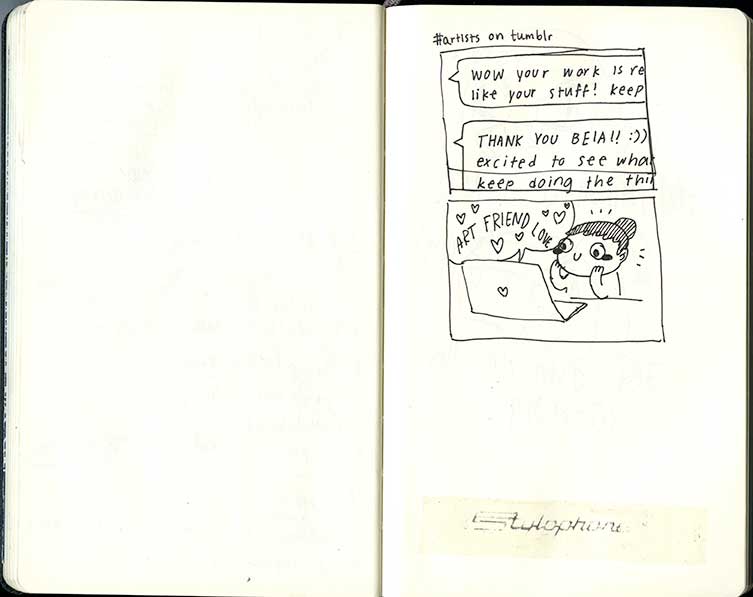 #artists on tumblr
WOW your work is re
like your stuff! keep
THANK YOU BEIA!! :))
excited to see wha
keep doing the thi
ART FRIEND LOVE
Stylophone